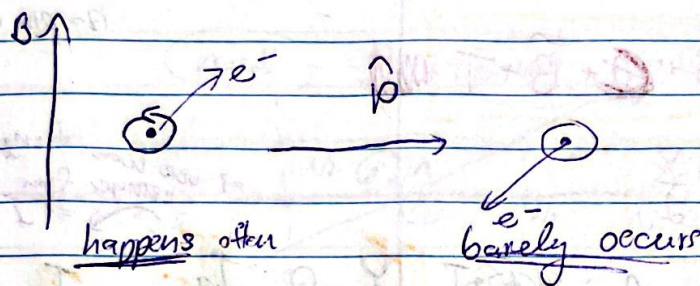 B
e⁻
p̂
e⁻
happens often
barely occurs